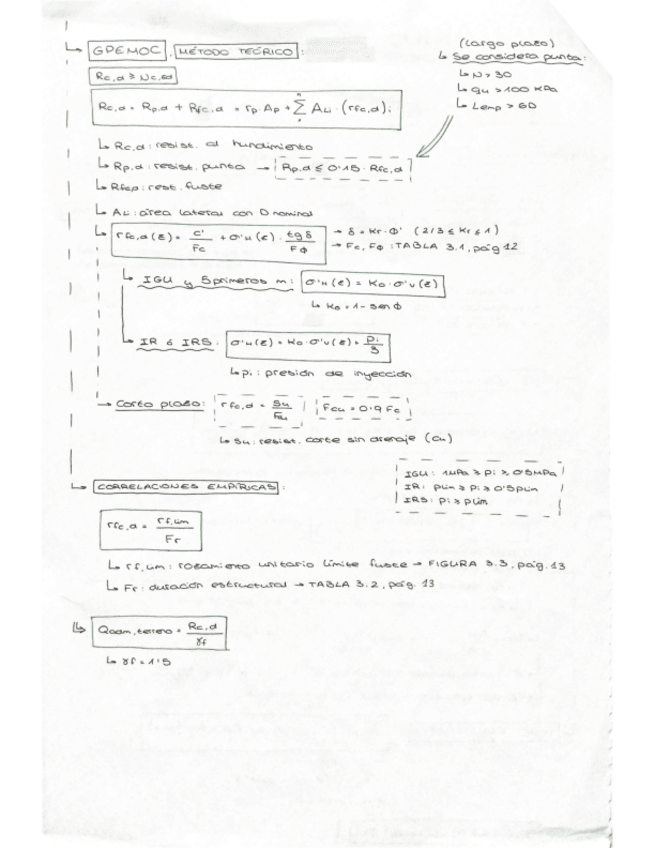 GPEMOC, MÉTODO TEÓRICO:
Rc,d ≥ Nc,Ed
Rc,d = Rp,d + Rfc,d = rp · Ap + Σ ALi · (rfc,d)i
(largo plazo)
Se considera punta:
N > 30
qu > 100 KPa
Lemp > 6D
Rc,d: resist. al hundimiento
Rp,d: resist. punta → Rp,d ≤ 0'15 · Rfc,d
Rfc,d: rest. fuste
AL: área lateral con D nominal
rfc,d(z) = c'/Fc + σ'h(z) · tgδ/Fϕ → δ = Kr · ϕ' (2/3 ≤ Kr ≤ 1)
→ Fc, Fϕ: TABLA 3.1, pág 12
IGU y 5 primeros m: σ'h(z) = K0 · σ'v(z)
K0 = 1 - sen ϕ
IR ó IRS: σ'h(z) = K0 · σ'v(z) + Pi/3
pi: presión de inyección
Corto plazo: rfc,d = Su/Fcu Fcu = 0'9 Fc
Su: resist. corte sin drenaje (cu)
IGU: 1MPa ≥ Pi ≥ 0'5MPa
IR: Plim ≥ Pi ≥ 0'5Plim
IRS: Pi ≥ Plim
CORRELACIONES EMPÍRICAS:
rfc,d = rf,lim/Fr
rf,lim: rozamiento unitario límite fuste → FIGURA 3.3, pág. 13
Fr: duración estructural → TABLA 3.2, pág. 13
Qadm,terreno = Rc,d/γf
γf = 1'5